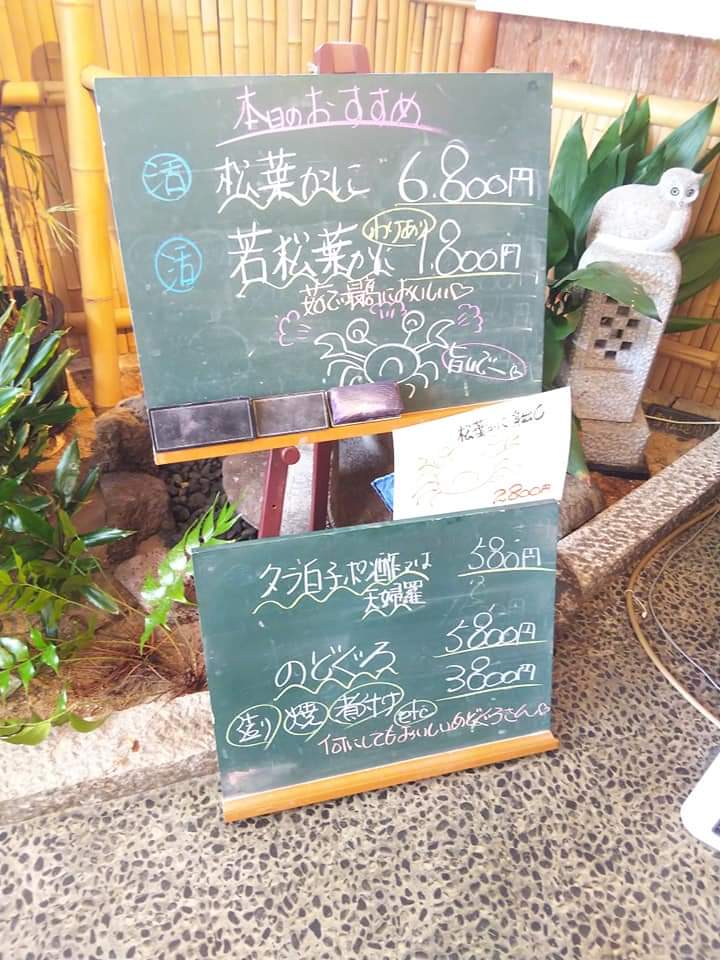 本日のおすすめ
活 松葉かに 6.800円
わけあり
活 若松葉かに 1.800円
茹で最高においしい♡
旨いでー♡
松葉かに
2800円
タラ白子ポン酢又は 580円
天婦羅
5800円
のどぐろ 3800円
造り 焼 煮付け etc
何にしてもおいしいのどぐろさん♡